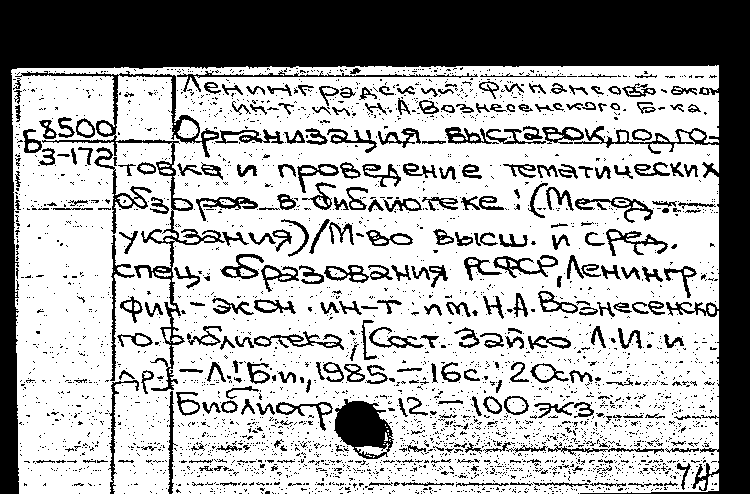 Ленинградский финансово-экон
ин-т им. Н.А.Вознесенского. Б-ка.
Б8500
3-172
Организация выставок, подго-
товка и проведение тематических
обзоров в библиотеке: (Метод.
указания)/М-во высш. и сред.
спец. образования РСФСР, Ленингр.
фин.-экон. ин-т им. Н.А.Вознесенско
го. Библиотека; [Сост. Зайко Л.И. и
др]. - Л.: Б.и., 1985. - 16с.; 20см.
Библиогр. -12. - 100 экз.